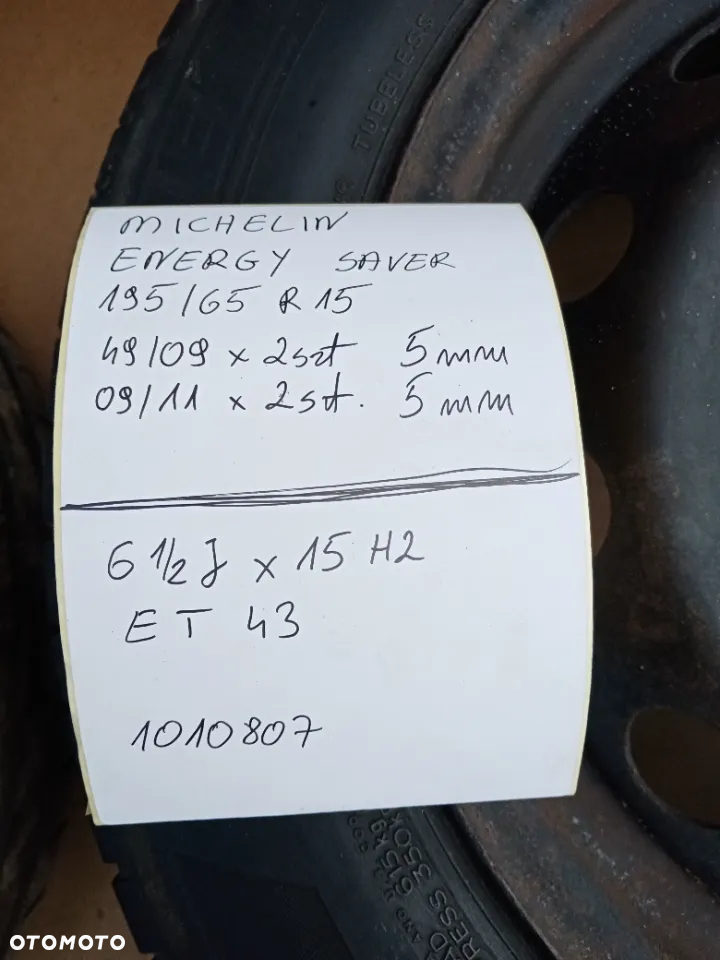 TUBELESS
MICHELIN
ENERGY SAVER
195/65 R 15
49/09 x 2szt 5mm
09/11 x 2szt. 5mm
6 1/2 J x 15 H2
ET 43
1010807
615 kg
PRESS 350 k
OTOMOTO